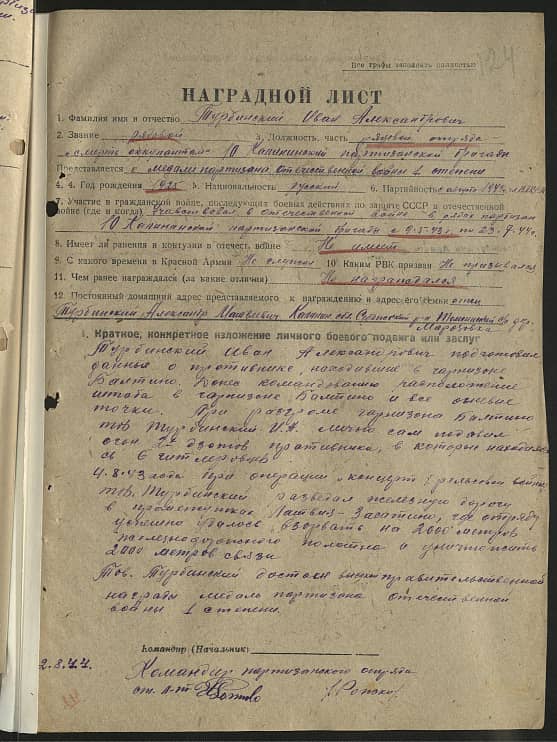 124
Все графы заполнять полностью
НАГРАДНОЙ ЛИСТ
1. Фамилия имя и отчество Турбинский Иван Александрович
2. Звание рядовой 3. Должность, часть рядовой отряда
"Смерть оккупантам" 10 Калининской партизанской бригады
Представляется к медали партизана отечественной войны 1 степени
4. 4. Год рождения 1925 5. Национальность русский 6. Партийность с 1944
7. Участие в гражданской войне, последующих боевых действиях по защите СССР и отечественной
войне (где и когда) Участвовал в отечественной войне в рядах партизан
10 Калининской партизанской бригады с 9.5.43 г. по 23.7.44 г.
8. Имеет ли ранения и контузии в отечеств. войне Не имеет
9. С какого времени в Красной Армии Не служил 10 Каким РВК призван Не призывался
11. Чем ранее награждался (за какие отличия) Не награждался
12. Постоянный домашний адрес представляемого к награждению и адрес его семьи отец
Турбинский Александр Калинин. обл. р-н с/с дер.
Морозовка
I. Краткое, конкретное изложение личного боевого подвига или заслуг
Турбинский Иван Александрович подготовил
данные о противнике, находившие в гарнизоне
Балтино. Донес командованию расположение
штаба в гарнизоне Балтино и все огневые
точки. При разгроме гарнизона Балтино
тов. Турбинский И.А. лично сам подавил
огон 2х дзотов противника, в которых находилось
6 гитлеровцев
4.8.43 года при операции "концерт" рельсовой войны
тов. Турбинский разведал железную дорогу
в промежутках Латвия-Заситино, где отряду
успешно удалось взорвать на 2000 метров
железнодорожного полотна и уничтожить
2000 метров связи
Тов. Турбинский достоен вышеправительственной
награды медаль партизана отечественной
войны 1 степени.
Командир (Начальник)
2.8.44. Командир партизанского отряда
ст. л-т